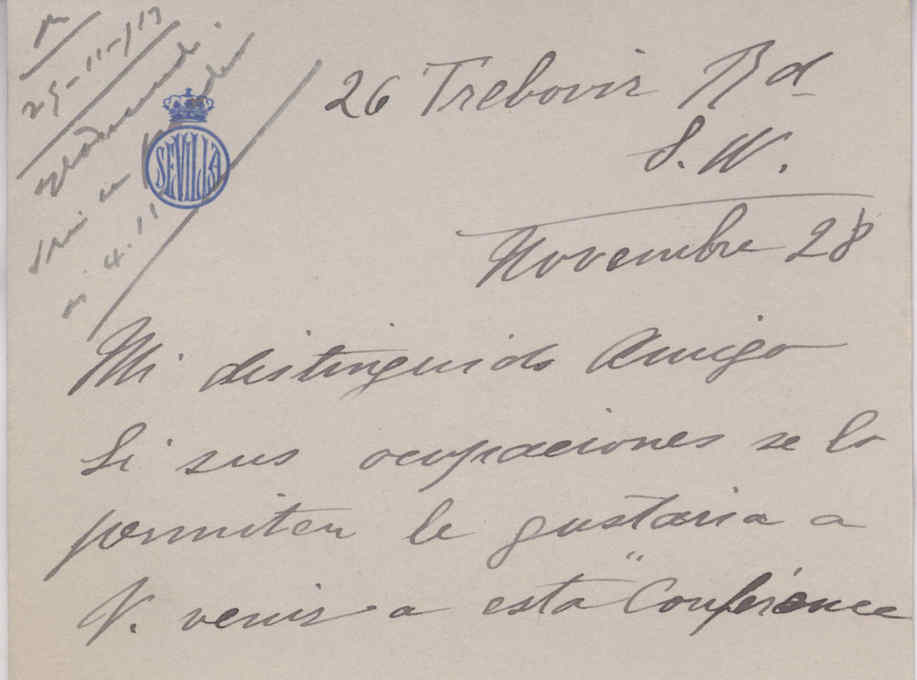 29-11-13
agradeciendo.
SEVILLA
26 Trebovir Rd
S. W.
Novembre 28
Mi distinguido Amigo
Si sus ocupaciones se lo
permiten le gustaria a
V. venir a esta "Conférence